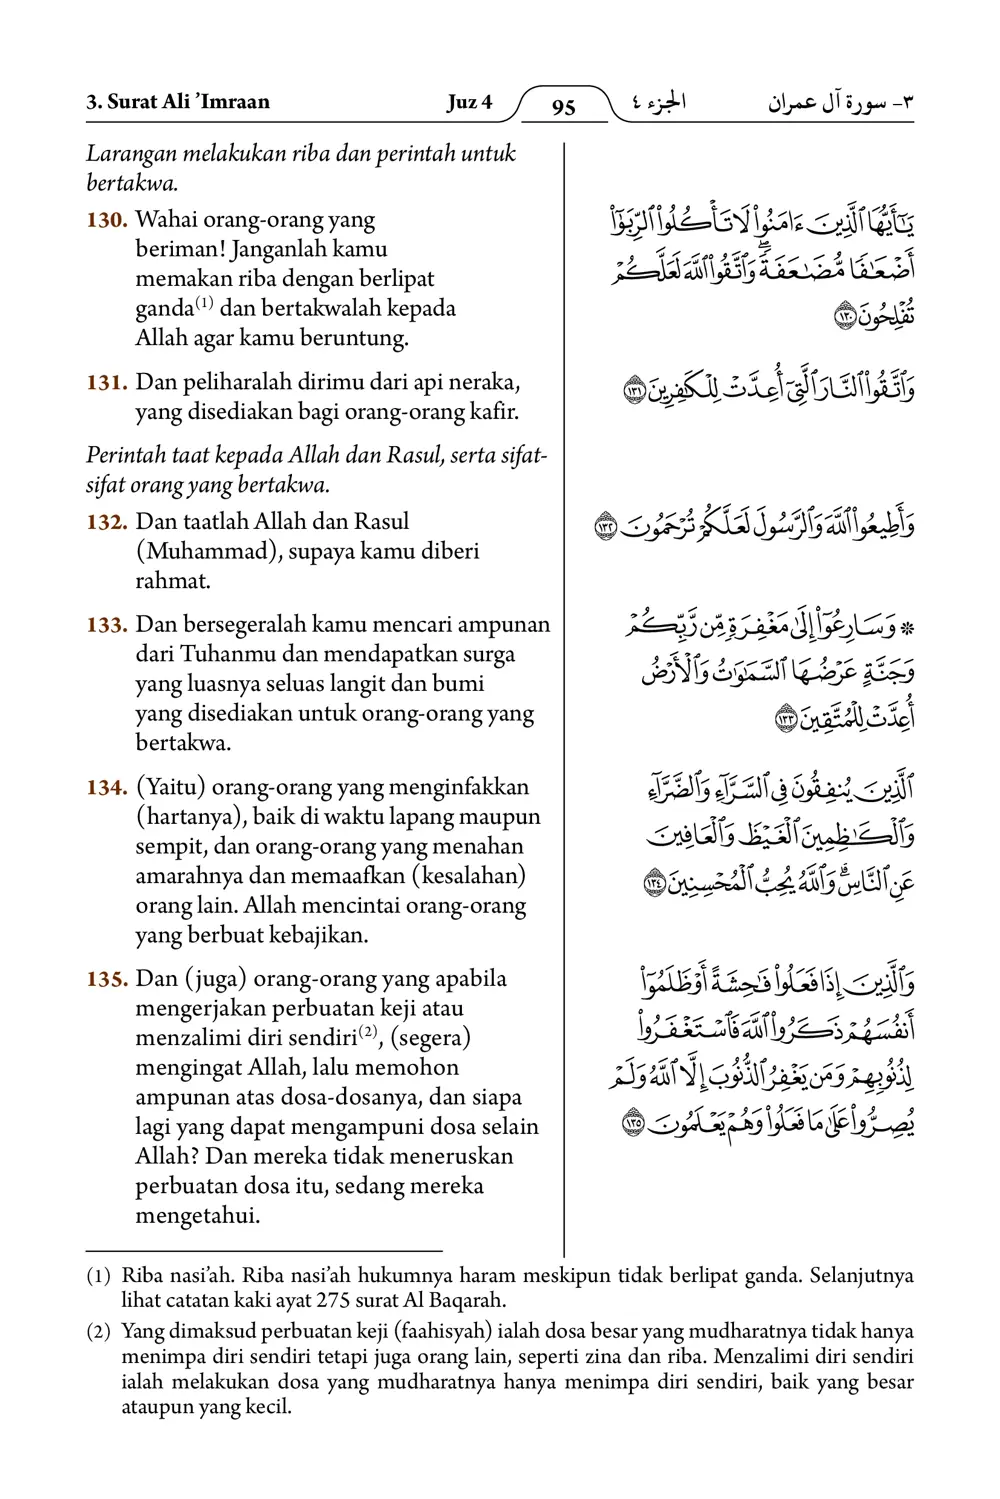 3. Surat Ali ’Imraan Juz 4 95 الجزء ٤ ٣- سورة آل عمران
Larangan melakukan riba dan perintah untuk
bertakwa.
130. Wahai orang-orang yang
beriman! Janganlah kamu
memakan riba dengan berlipat
ganda(1) dan bertakwalah kepada
Allah agar kamu beruntung.
يَٰٓأَيُّهَا ٱلَّذِينَ ءَامَنُوا۟ لَا تَأْكُلُوا۟ ٱلرِّبَوٰٓا۟
أَضْعَٰفًا مُّضَٰعَفَةً ۖ وَٱتَّقُوا۟ ٱللَّهَ لَعَلَّكُمْ
تُفْلِحُونَ ١٣٠
131. Dan peliharalah dirimu dari api neraka,
yang disediakan bagi orang-orang kafir.
وَٱتَّقُوا۟ ٱلنَّارَ ٱلَّتِىٓ أُعِدَّتْ لِلْكَٰفِرِينَ ١٣١
Perintah taat kepada Allah dan Rasul, serta sifat-
sifat orang yang bertakwa.
132. Dan taatlah Allah dan Rasul
(Muhammad), supaya kamu diberi
rahmat.
وَأَطِيعُوا۟ ٱللَّهَ وَٱلرَّسُولَ لَعَلَّكُمْ تُرْحَمُونَ ١٣٢
133. Dan bersegeralah kamu mencari ampunan
dari Tuhanmu dan mendapatkan surga
yang luasnya seluas langit dan bumi
yang disediakan untuk orang-orang yang
bertakwa.
* وَسَارِعُوٓا۟ إِلَىٰ مَغْفِرَةٍ مِّن رَّبِّكُمْ
وَجَنَّةٍ عَرْضُهَا ٱلسَّمَٰوَٰتُ وَٱلْأَرْضُ
أُعِدَّتْ لِلْمُتَّقِينَ ١٣٣
134. (Yaitu) orang-orang yang menginfakkan
(hartanya), baik di waktu lapang maupun
sempit, dan orang-orang yang menahan
amarahnya dan memaafkan (kesalahan)
orang lain. Allah mencintai orang-orang
yang berbuat kebajikan.
ٱلَّذِينَ يُنفِقُونَ فِى ٱلسَّرَّآءِ وَٱلضَّرَّآءِ
وَٱلْكَٰظِمِينَ ٱلْغَيْظَ وَٱلْعَافِينَ
عَنِ ٱلنَّاسِ ۗ وَٱللَّهُ يُحِبُّ ٱلْمُحْسِنِينَ ١٣٤
135. Dan (juga) orang-orang yang apabila
mengerjakan perbuatan keji atau
menzalimi diri sendiri(2), (segera)
mengingat Allah, lalu memohon
ampunan atas dosa-dosanya, dan siapa
lagi yang dapat mengampuni dosa selain
Allah? Dan mereka tidak meneruskan
perbuatan dosa itu, sedang mereka
mengetahui.
وَٱلَّذِينَ إِذَا فَعَلُوا۟ فَٰحِشَةً أَوْ ظَلَمُوٓا۟
أَنفُسَهُمْ ذَكَرُوا۟ ٱللَّهَ فَٱسْتَغْفَرُوا۟
لِذُنُوبِهِمْ وَمَن يَغْفِرُ ٱلذُّنُوبَ إِلَّا ٱللَّهُ وَلَمْ
يُصِرُّوا۟ عَلَىٰ مَا فَعَلُوا۟ وَهُمْ يَعْلَمُونَ ١٣٥
(1) Riba nasi’ah. Riba nasi’ah hukumnya haram meskipun tidak berlipat ganda. Selanjutnya
lihat catatan kaki ayat 275 surat Al Baqarah.
(2) Yang dimaksud perbuatan keji (faahisyah) ialah dosa besar yang mudharatnya tidak hanya
menimpa diri sendiri tetapi juga orang lain, seperti zina dan riba. Menzalimi diri sendiri
ialah melakukan dosa yang mudharatnya hanya menimpa diri sendiri, baik yang besar
ataupun yang kecil.